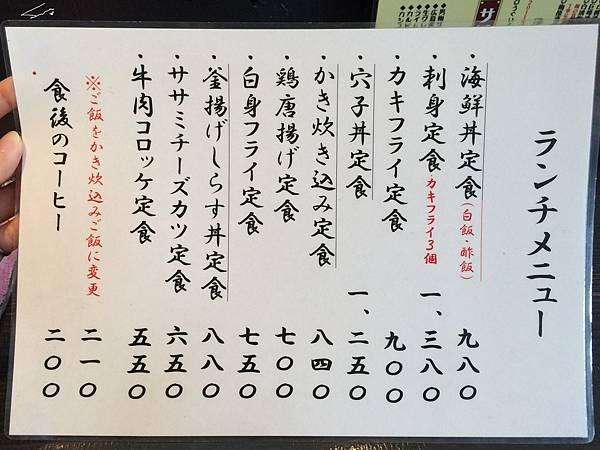 ランチメニュー
・海鮮丼定食(白飯・酢飯) 九八〇
・刺身定食・カキフライ3個 一、三八〇
・カキフライ定食 九〇〇
・穴子丼定食 一、二五〇
・かき炊き込み定食 八四〇
・鶏唐揚げ定食 七〇〇
・白身フライ定食 七五〇
・釜揚げしらす丼定食 八八〇
・ササミチーズカツ定食 六五〇
・牛肉コロッケ定食 五五〇
※ご飯をかき炊込みご飯に変更 二一〇
食後のコーヒー 二〇〇